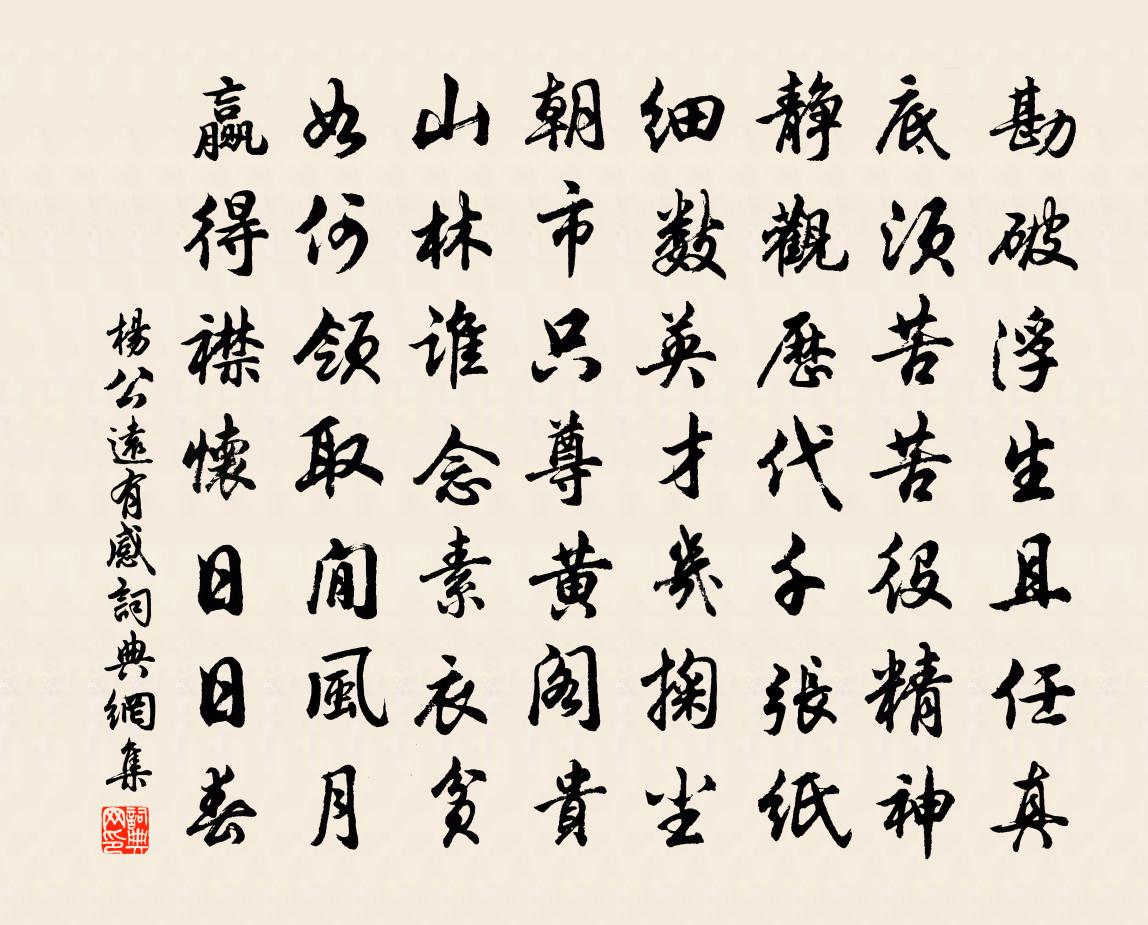 勘破浮生且任真
底須苦苦役精神
静觀歷代千張紙
細數英才幾掬尘
朝市只尊黃阁貴
山林誰念素衣貧
如何領取閒風月
贏得襟懷日日春
楊公遠有感詞典網集
詞典网印